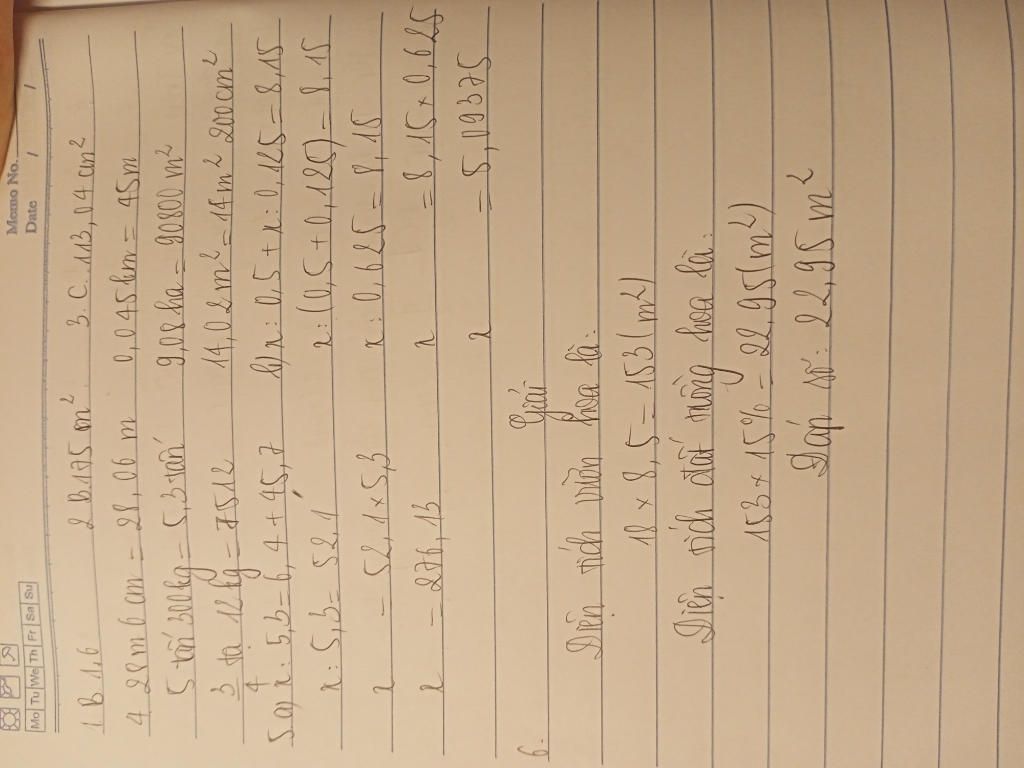 Memo No.
Mo Tu We Th Fr Sa Su
Date / /
1 B 1,6 2 B 175 m² 3. C. 113,04 cm²
4 28 m 6 cm = 28,06 m 0,045 km = 45m
5 tấn 300kg = 5,3 tấn 9,08 ha = 90800 m²
3/4 tạ 12 kg = 7512 14,02 m² = 14m² 200cm²
5 a) x : 5,3 = 6,4 + 45,7 b) x : 0,5 + x : 0,125 = 8,15
x : 5,3 = 52,1 x : (0,5 + 0,125) = 8,15
x = 52,1 × 5,3 x : 0,625 = 8,15
x = 276,13 x = 8,15 × 0,625
x = 5,09375
6. Giải
Diện tích vườn hoa là:
18 × 8,5 = 153 (m²)
Diện tích đất trồng hoa là:
153 × 15% = 22,95 (m²)
Đáp số: 22,95 m²